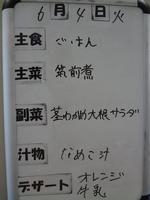 6月4日火
主食 ごはん
主菜 筑前煮
副菜 茎わかめ大根サラダ
汁物 なめこ汁
デザート オレンジ
牛乳